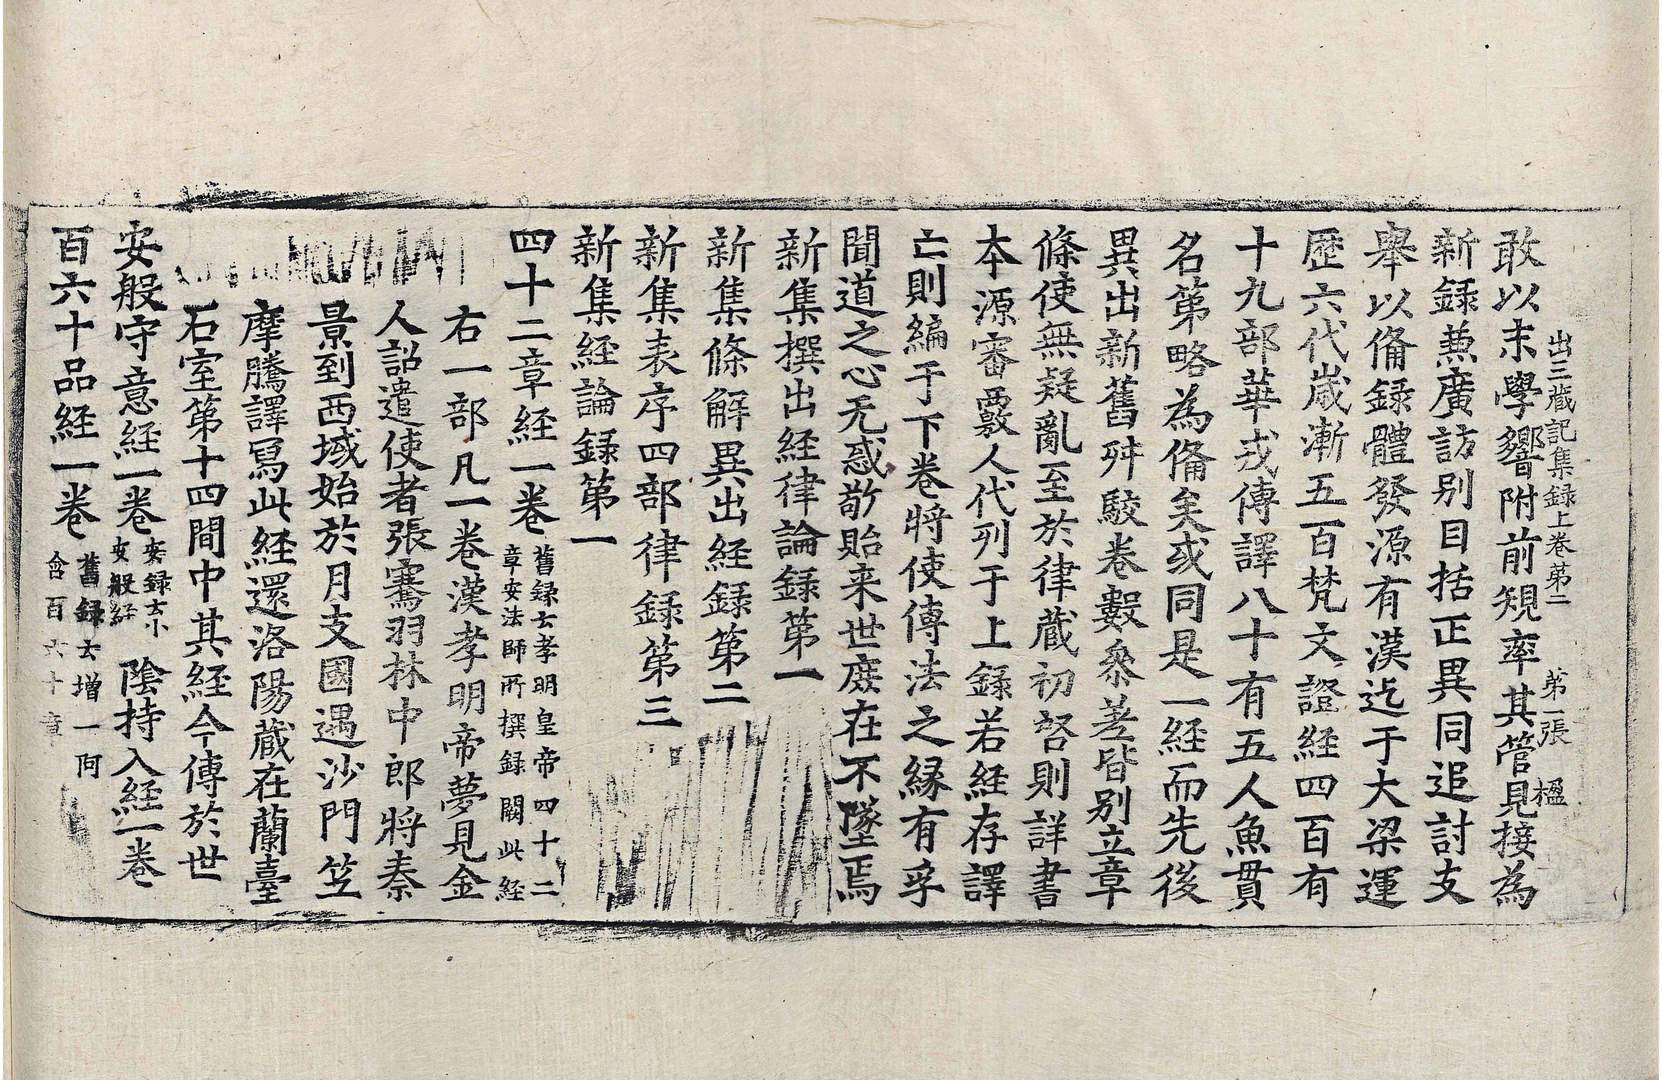 出三藏記集録上卷苐二　苐一張　楹
敢以末學響附前規率其管見接為
新録兼廣訪別目括正異同追討支
舉以俻録體發源有漢迄于大梁運
歷六代歲漸五百梵文證経四百有
十九部華戎傳譯八十有五人魚貫
名第略為俻矣或同是一経而先後
異出新舊舛駮卷數叅差皆別立章
條使無疑亂至於律藏初啓則詳書
本源審覈人代列于上録若経存譯
亡則編于下卷將使傳法之縁有孚
聞道之心无惑敬貽来世庻在不墜焉
新集撰出経律論録第一
新集條解異出経録第二
新集表序四部律録第三
新集経論録第一
四十二章経一卷
舊録云孝明皇帝四十二
章安法師所撰録闕此経
右一部凡一卷漢孝明帝夢見金
人詔遣使者張騫羽林中郎將秦
景到西域始於月支國遇沙門笁
摩騰譯冩此経還洛陽藏在蘭臺
石室第十四間中其経今傳於世
安般守意経一卷
安録云小
安般経
陰持入経一卷
百六十品経一卷
舊録云增一阿
含百六十章